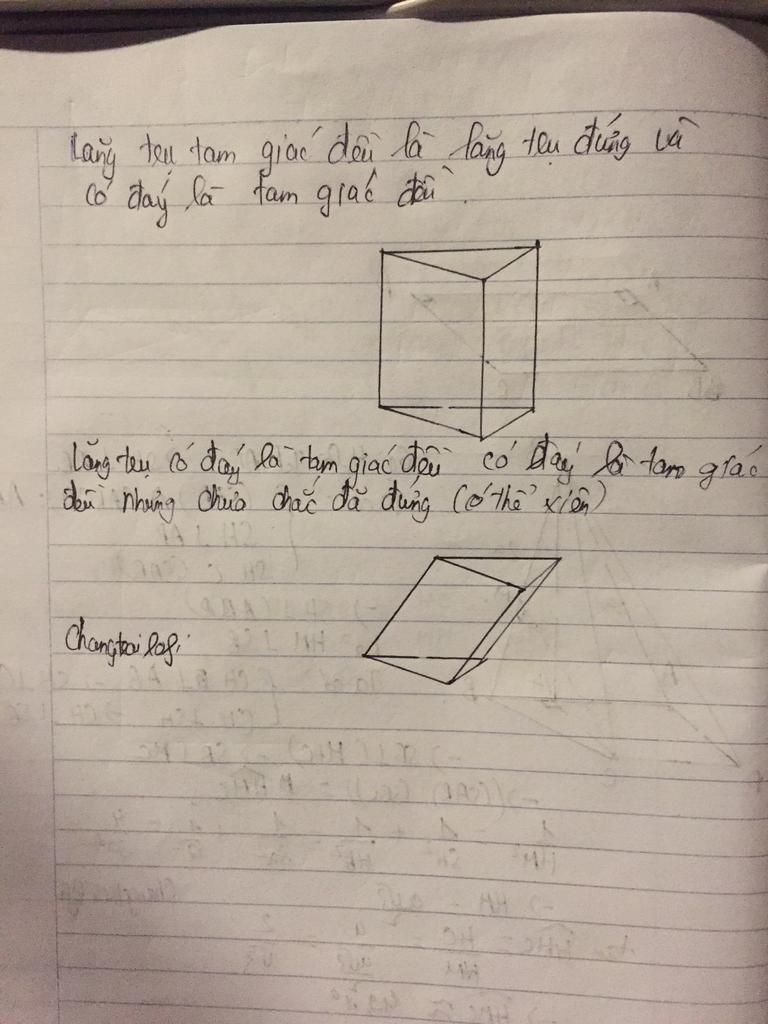 Lăng trụ tam giác đều là lăng trụ đứng và
có đáy là tam giác đều.
Lăng trụ có đáy là tam giác đều có đáy là tam giác
đều nhưng chưa chắc đã đứng (có thể xiên)
Changtrailof: